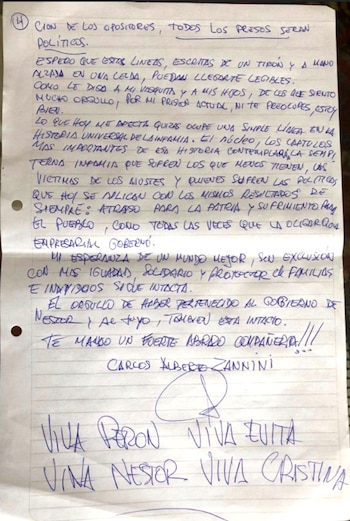 4
CION DE LOS OPOSITORES, TODOS LOS PRESOS SERAN
POLÍTICOS.
ESPERO QUE ESTAS LINEAS, ESCRITAS DE UN TIRÓN Y A MANO
ALZADA EN UNA CELDA, PUEDAN LLEGARTE LEGIBLES.
COMO LE DIGO A MI VIEJITA Y A MIS HIJOS, DE LOS QUE SIENTO
MUCHO ORGULLO, POR MI PRISIÓN ACTUAL, NI TE PREOCUPES, ESTOY
BIEN.
LO QUE HOY ME AFECTA QUIZAS OCUPE UNA SIMPLE LÍNEA EN LA
HISTORIA UNIVERSAL DE LA INFAMIA. EL NÚCLEO, LOS CAPITULOS
MAS IMPORTANTES DE ESA HISTORIA CONTEMPLARÁ LA SEMPI
TERNA INFAMIA QUE SUFREN LOS QUE MENOS TIENEN, LAS
VICTIMAS DE LOS AJUSTES Y QUIENES SUFREN LAS POLITICAS
QUE HOY SE APLICAN CON LOS MISMOS RESULTADOS DE
SIEMPRE: ATRASO PARA LA PATRIA Y SUFRIMIENTO PARA
EL PUEBLO, COMO TODAS LAS VECES QUE LA OLIGARQUIA
EMPRESARIAL GOBERNÓ.
MI ESPERANZA DE UN MUNDO MEJOR, SIN EXCLUSIÓN
CON MAS IGUALDAD, SOLIDARIO Y PROTECTOR DE FAMILIAS
E INDIVIDUOS SIGUE INTACTA.
EL ORGULLO DE HABER PERTENECIDO AL GOBIERNO DE
NESTOR Y AL TUYO, TAMBIEN ESTA INTACTO.
TE MANDO UN FUERTE ABRAZO COMPAÑERA!!!
CARLOS ALBERTO ZANNINI
VIVA PERON VIVA EVITA
VIVA NESTOR VIVA CRISTINA